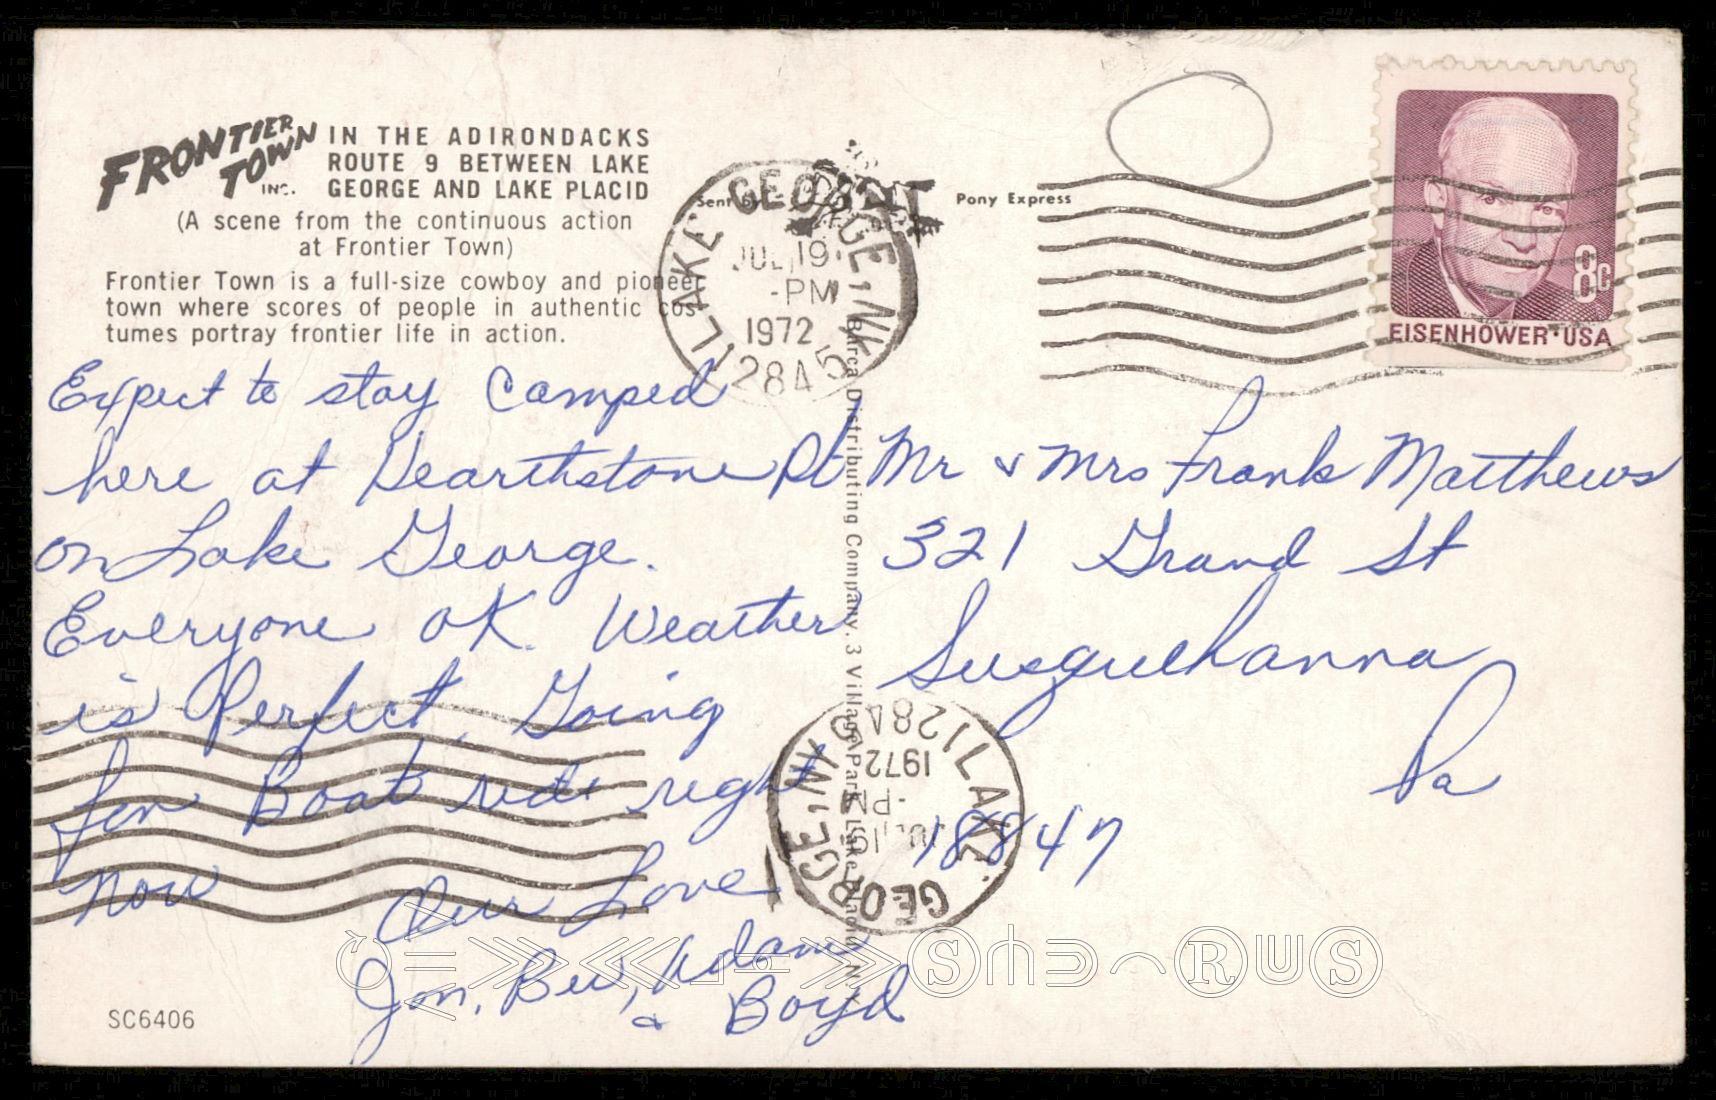 FRONTIER TOWN INC.
IN THE ADIRONDACKS
ROUTE 9 BETWEEN LAKE
GEORGE AND LAKE PLACID
(A scene from the continuous action
at Frontier Town)
Frontier Town is a full-size cowboy and pioneer
town where scores of people in authentic cos-
tumes portray frontier life in action.
Expect to stay camped
here at Hearthstone Pt
on Lake George.
Everyone OK. Weather
is Perfect. Going
for Boat ride right
now
Our Love
Jon, Bev, Adam
& Boyd
SC6406
Sent by
Pony Express
LAKE GEORGE, NY
JUL 19
-PM
1972
12845
Barca Distributing Company, 3 Village Park, Lake Placid, N.Y.
8c
EISENHOWER·USA
Mr & Mrs Frank Matthews
321 Grand St
Susquehanna
Pa
18847
LAKE GEORGE, NY
JUL 19
-PM
1972
1284